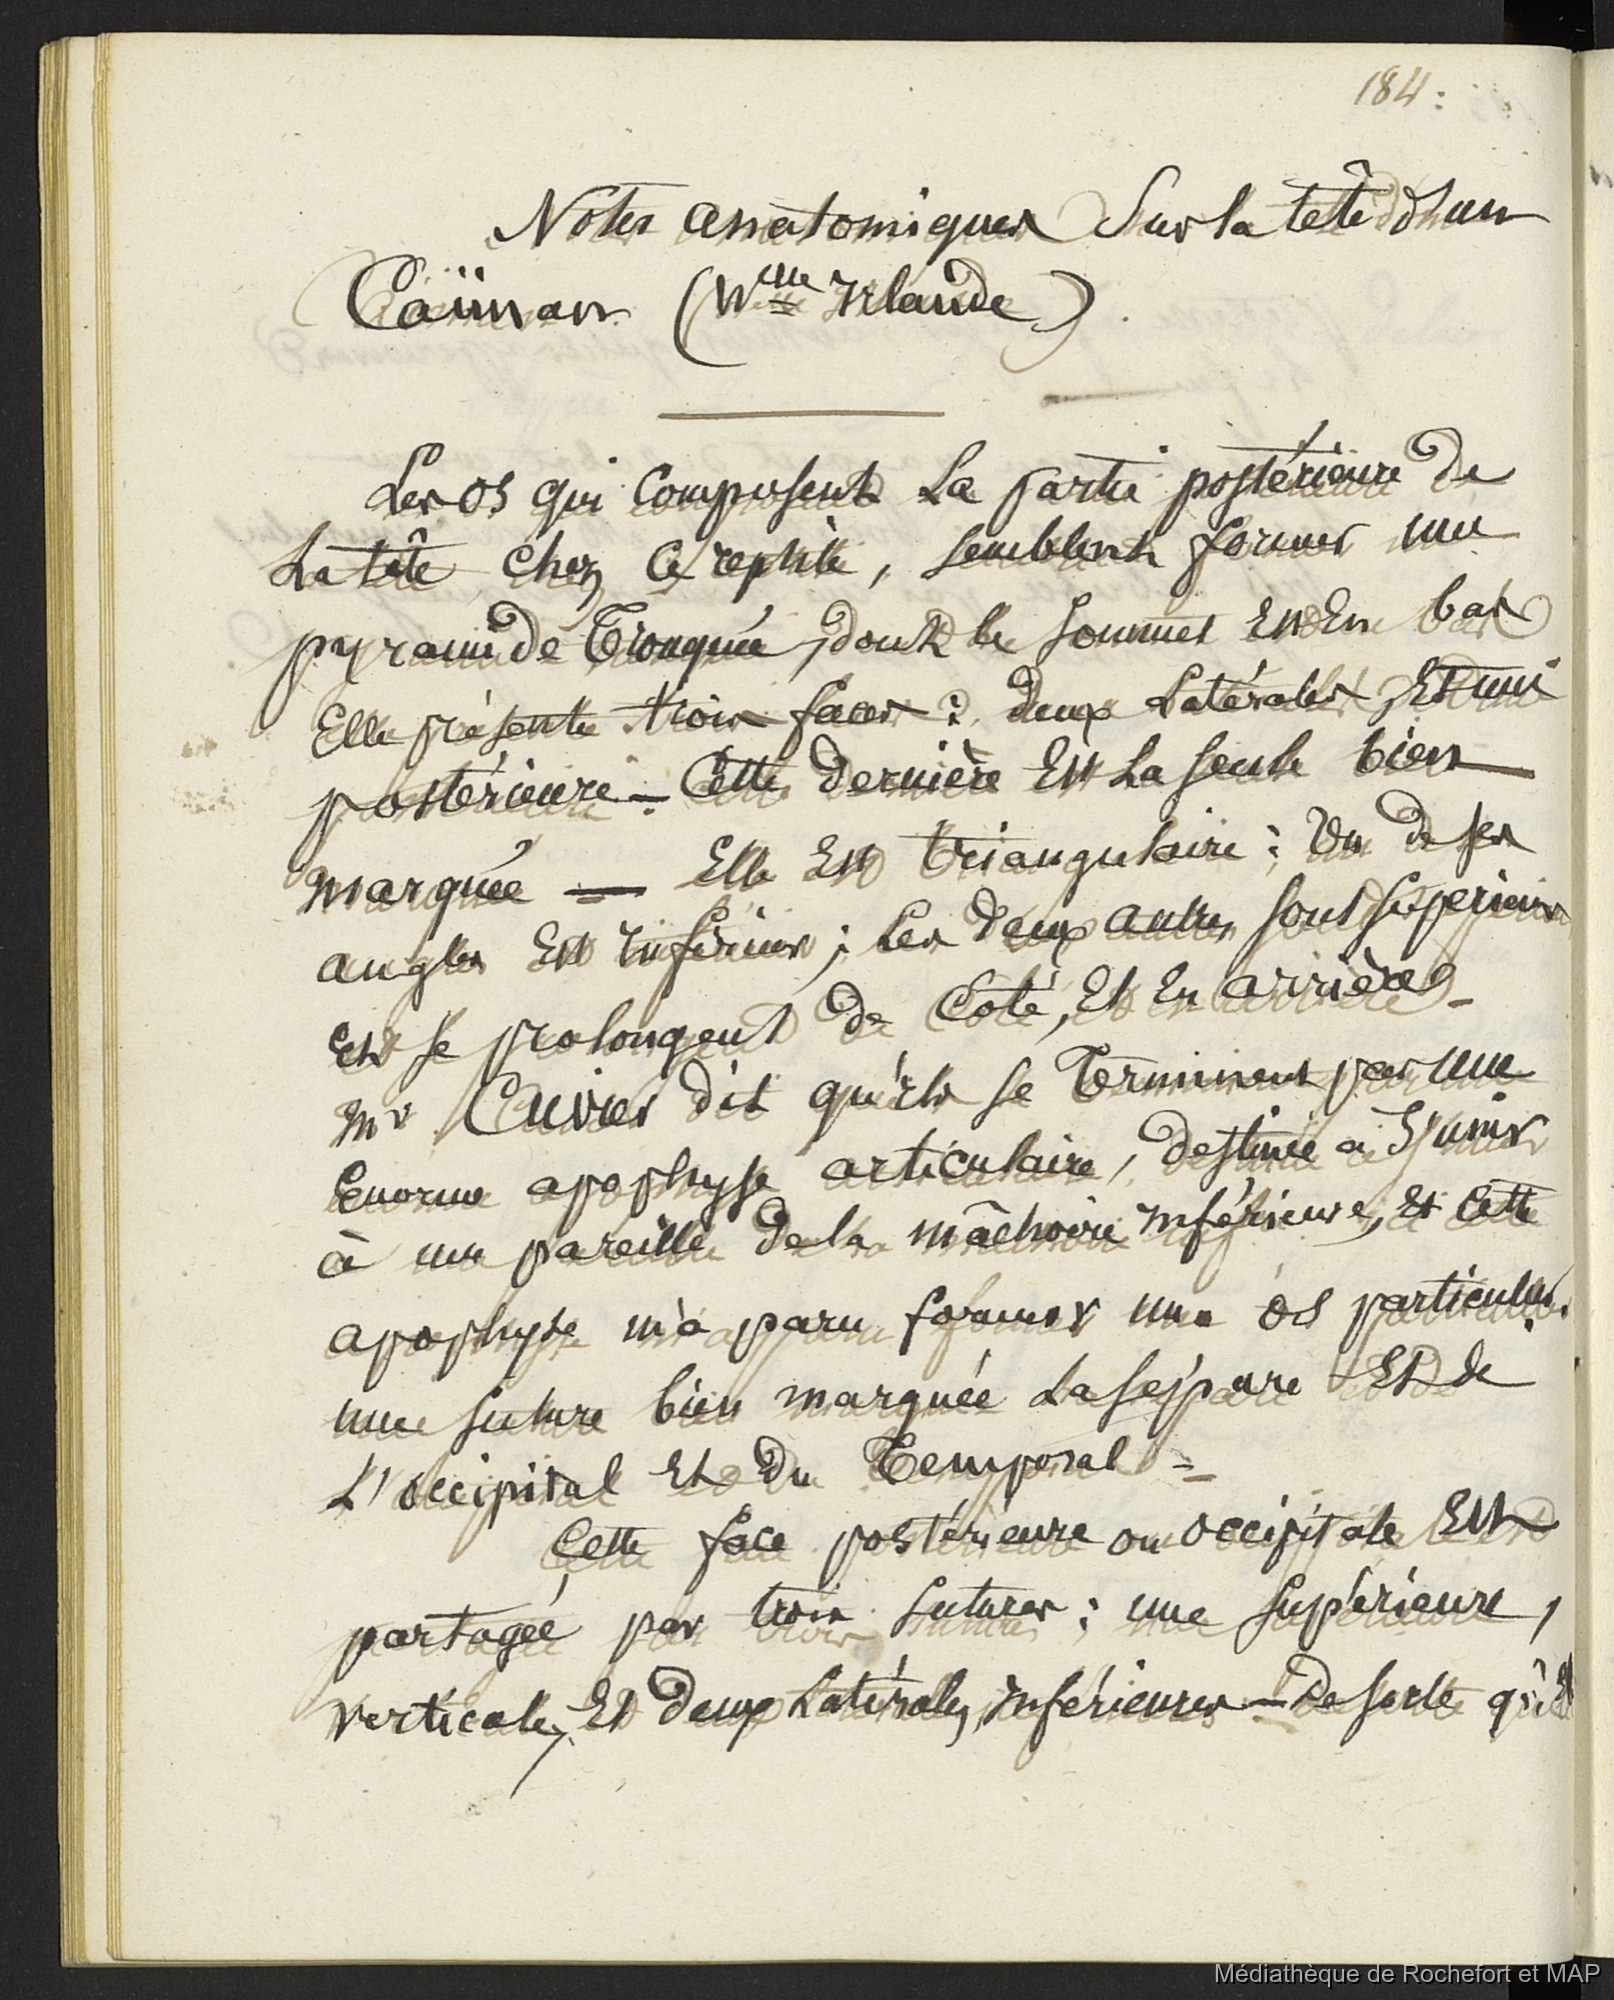 184:
Notes anatomiques Sur la tête d'un
Caïman (N.elle Irlande).
Les os qui Composent La partie postérieure de
La tête chez ce reptile, semblent former une
pyramide Tronquée, dont le sommet Est En bas
Elle présente trois faces: deux Latérales, Et une
postérieure - Cette dernière Est La seule bien
marquée — Elle Est triangulaire; Un de ses
angles Est inférieur; Les deux autres sont supérieurs
Et se prolongent de Coté, Et En arrière -
Mr Cuvier dit qu'ils se Terminent par une
Enorme apophyse articulaire, destinée a S'unir
à une pareille de la mâchoire inférieure, Et Cette
apophyse m'a paru former une os particulier.
une suture bien marquée La sépare Et de
L'occipital Et du Temporal =
Cette face postérieure ou occipitale Est
partagée par trois sutures: une supérieure,
verticale, Et deux Latérales, inférieures - De sorte qu'Elle
Médiathèque de Rochefort et MAP